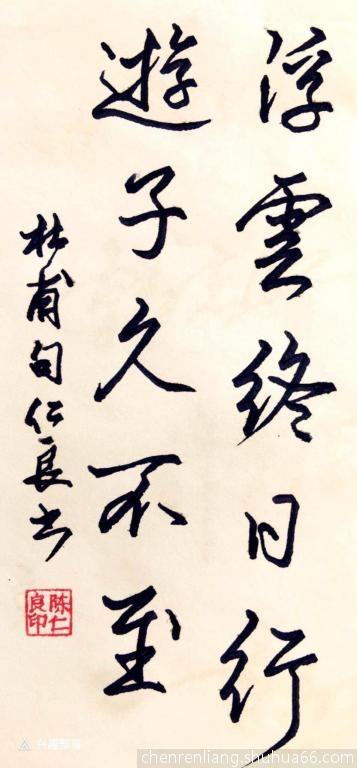 浮雲終日行
遊子久不至
杜甫句仁良书
陈仁
良印
chenrenliang.shuhua66.com